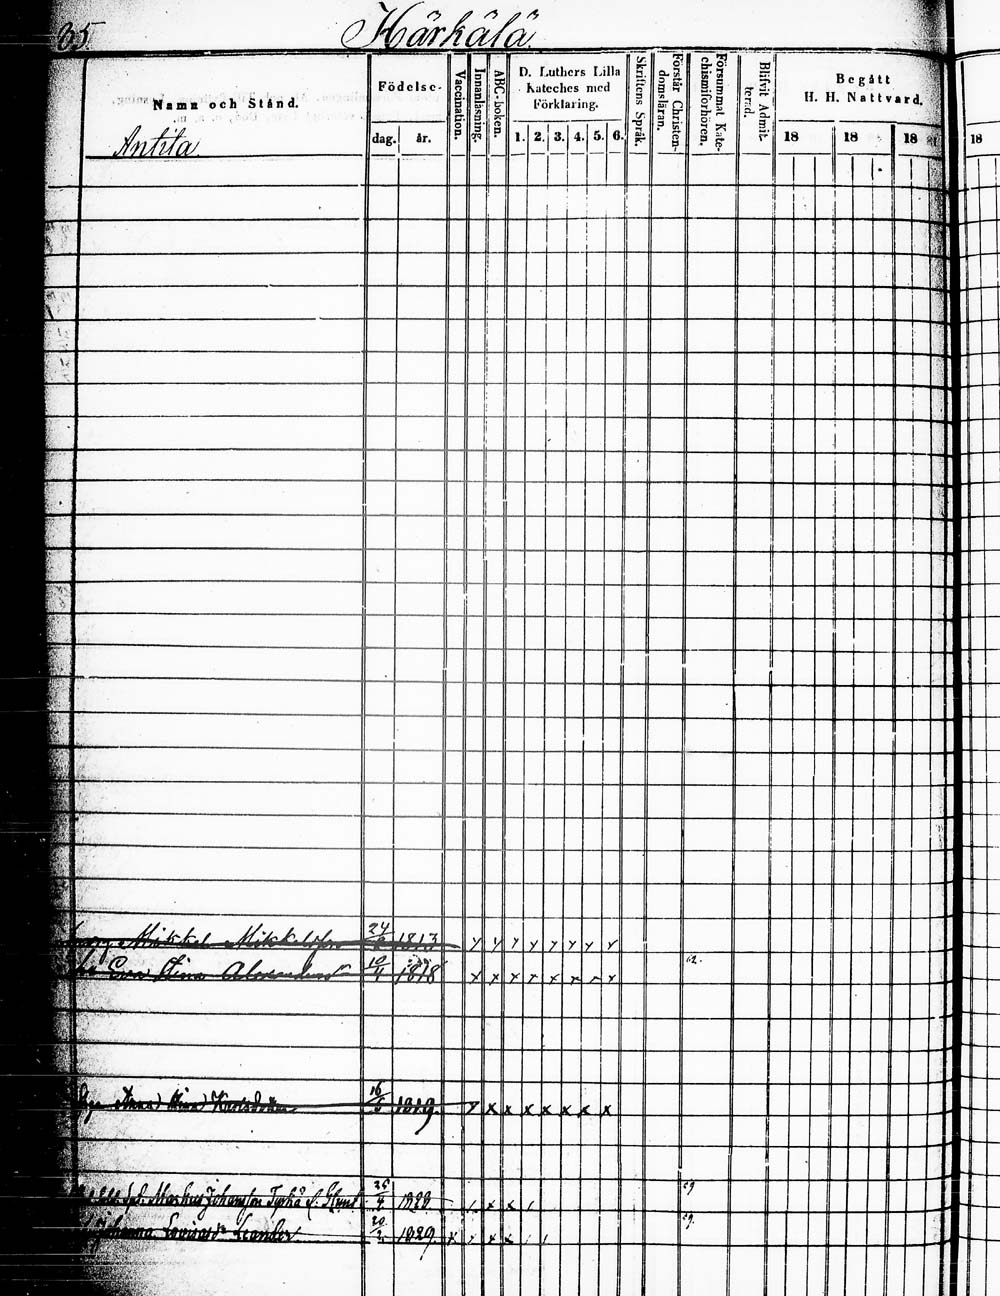 35. Härkälä
Namn och Stånd.
Antila
Födelse-
dag. år.
Vaccination.
Innanläsning.
ABC-boken.
D. Luthers Lilla
Kateches med
Förklaring.
1. 2. 3. 4. 5. 6.
Skriftens Språk.
Förstår Christen-
domsläran.
Försummat Kate-
chismiförhören.
Blifvit Admit-
terad.
Begått
H. H. Nattvard.
18 18 18 18
Mikkel Mikkelsson 24 1813 y y y y y y y y
Eva Stina Alexandersdr 10/4 1818 x x x x x x x x
62.
Anna Stina Karlsdotter 16/5 1819. y x x x x x x x
Markus Johansson 1828
59
Johanna Lovisa Leander. 20/2 1829. x
59.